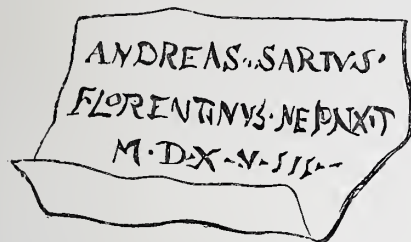 ANDREAS··SARTVS·
FLORENTINVS·NE PINXIT
M·D·X·V·III··